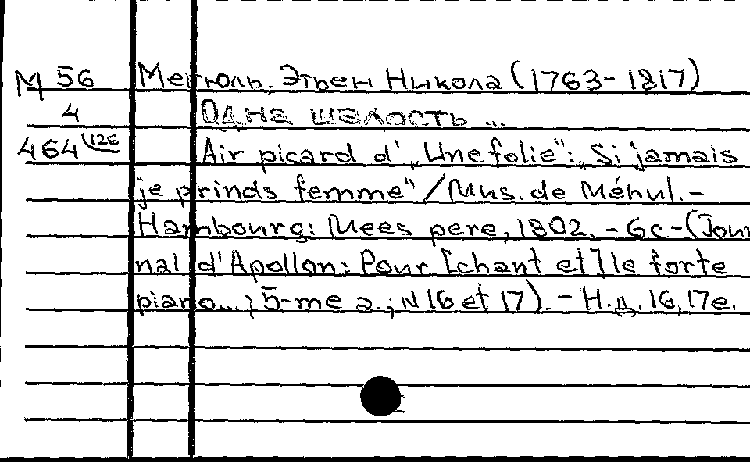 М 56 Мегюль, Этьен Никола (1763-1817)
4 Одна шалость ...
464 126 Air picard d' „Une folie": „Si jamais
je prinds femme" / Mus. de Méhul.-
Hambourg: Mees pere, 1802. - 6c - (Jour
nal d'Apollon: Pour [chant et] le forte
piano...; 5-me a.; N 16 et 17). - Н.д. 16, 17e.